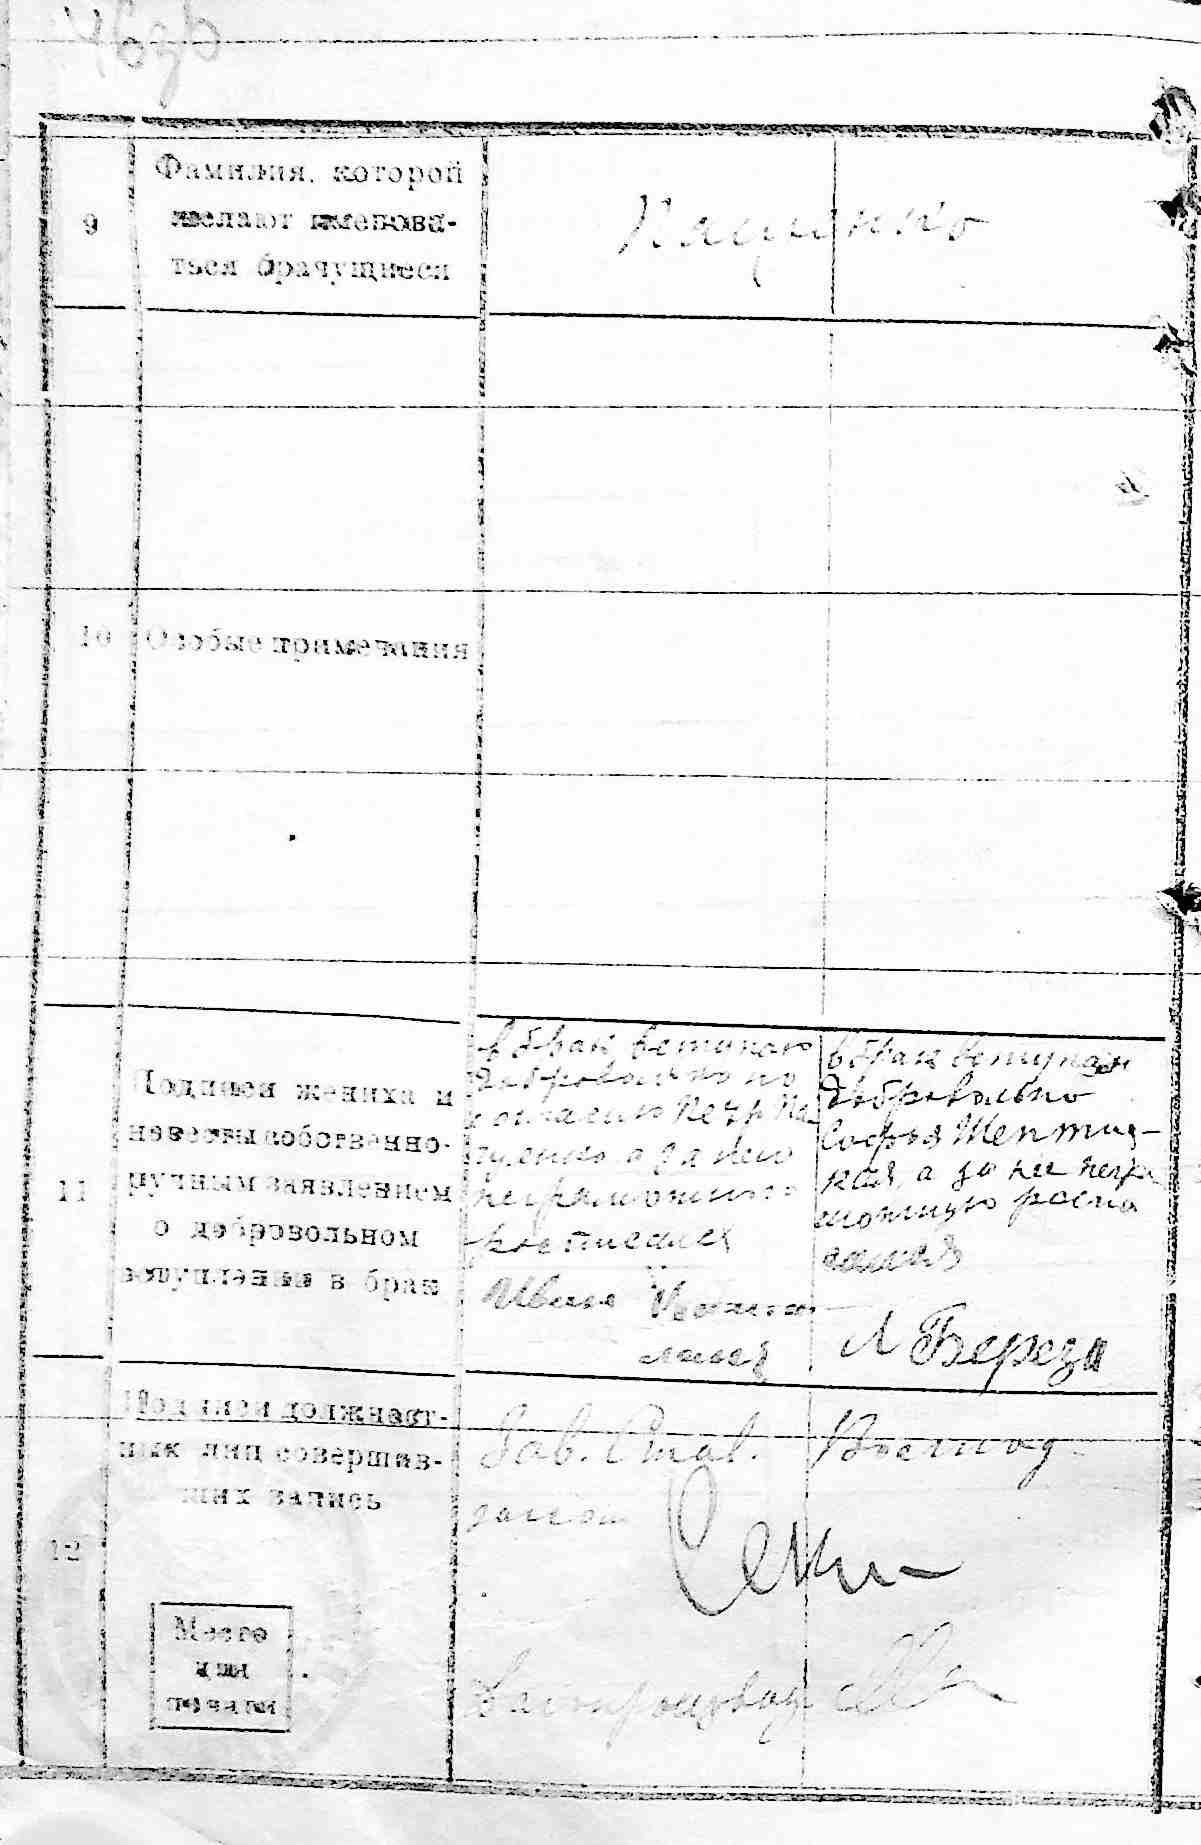 9
Фамилия, которой
желают именова-
ться брачущиеся
Пащенко
10
Особые примечания
11
Подписи жениха и
невесты собственно-
ручным заявлением
о добровольном
вступлении в брак
в брак вступаю
добровольно по
согласию Петр Па-
щенко а за него
неграмотного
росписался
Иван
в брак вступаю
добровольно
Софья Шептиц-
кая, а за не негра
мотную роспи
сался
Л Береза
12
Подписи должност-
ных лиц совершив-
ших запись
Зав. Стол.
Место
для
печати
Делопроизвод